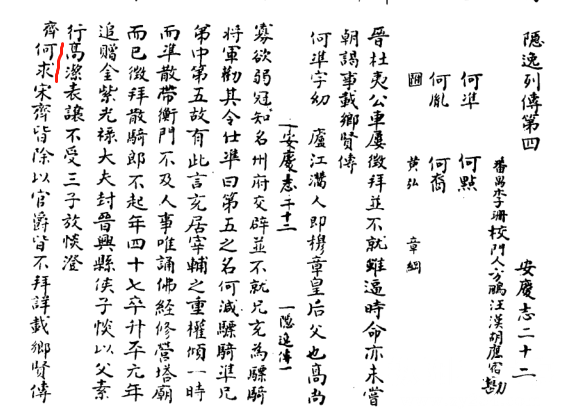 隱逸列傳第四 安慶志二十二
番禺 子珊校門人方鵬汪漢胡應宿勘
何準 何點
何胤 何裔 章綱
黄弘
晉杜夷公車屢徵拜並不就雖逼時命亦未嘗
朝謁事載鄉賢傳
何準字幼 廬江灊人即穆章皇后父也高尚
安慶志二十二 隱逸傳一
寡欲弱冠知名州府交辟並不就兄充為驃騎
將軍勸其令仕準曰第五之名何減驃騎準兄
弟中第五故有此言充居宰輔之重權傾一時
而準散帶衡門不及人事唯誦佛經修營塔廟
而已徵拜散騎郎不起年四十七卒升平元年
追贈金紫光祿大夫封晉興縣侯子惔以父素
行高潔表讓不受三子放惔澄
齊何求宋齊皆除以官爵皆不拜詳載鄉賢傳